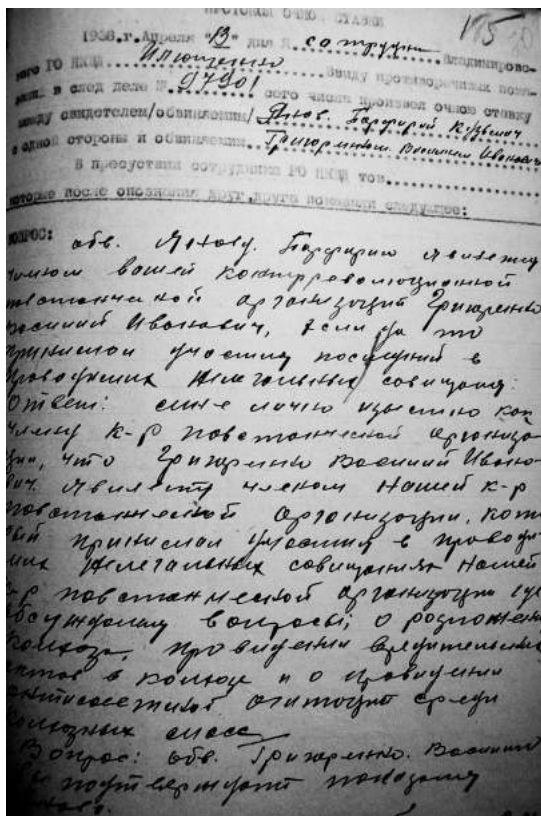 ПРОТОКОЛ ОЧНОЙ СТАВКИ
175
1938.г. Апреля "13" дня Я сотрудн Владимирово-
кого РО НКВД Илющенко Ввиду противоречивых пока-
в след деле № 97901 сего числа произвел очную ставку
между свидетелем/обвиняемым/ Яков. Парфирий Кузьмич
с одной стороны и обвиняемым Григоренком Василий Иванович
В присутствии сотрудников РО НКВД тов.
которые после опознания друг друга показали следующее:
ВОПРОС: обв. Парфирий является
членом вашей контрреволюционной
повстанческой организации Григоренко
Василий Иванович, если да то
принимал участие последний в
проводимых нелегальных совещаниях.
Ответ: мне лично известно как
члену к-р повстанческой организа-
ции, что Григоренко Василий Ивано-
вич является членом нашей к-р
повстанческой организации, кото
рый принимал участия в проводи
мых нелегальных совещаниях нашей
к-р повстанческой организации где
обсуждали вопросы о разложении
колхоза, проведении вредительских
актов в колхозе и о проведении
антисоветской агитации среди
колхозных масс.
Вопрос: обв. Григоренко. Василий
Вы подтверждаете показания